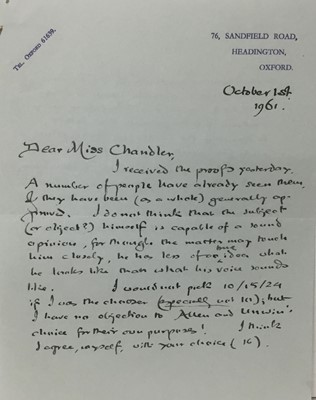 TEL. OXFORD 61639.
76, SANDFIELD ROAD,
HEADINGTON,
OXFORD.
October 1st.
1961.
Dear Miss Chandler,
I received the proofs yesterday.
A number of people have already seen them
& they have been (as a whole) generally ap-
proved. I do not think that the subject
(or object?) himself is capable of a sound
opinion, for though the matter may touch
him closely, he has less of a true idea what
he looks like than what his voice sounds
like. I would not pick 10/15/24
if I was the chooser (especially not 10); but
I have no objection to Allen and Unwin's
choice for their own purposes! I think
I agree, myself, with your choice (16).